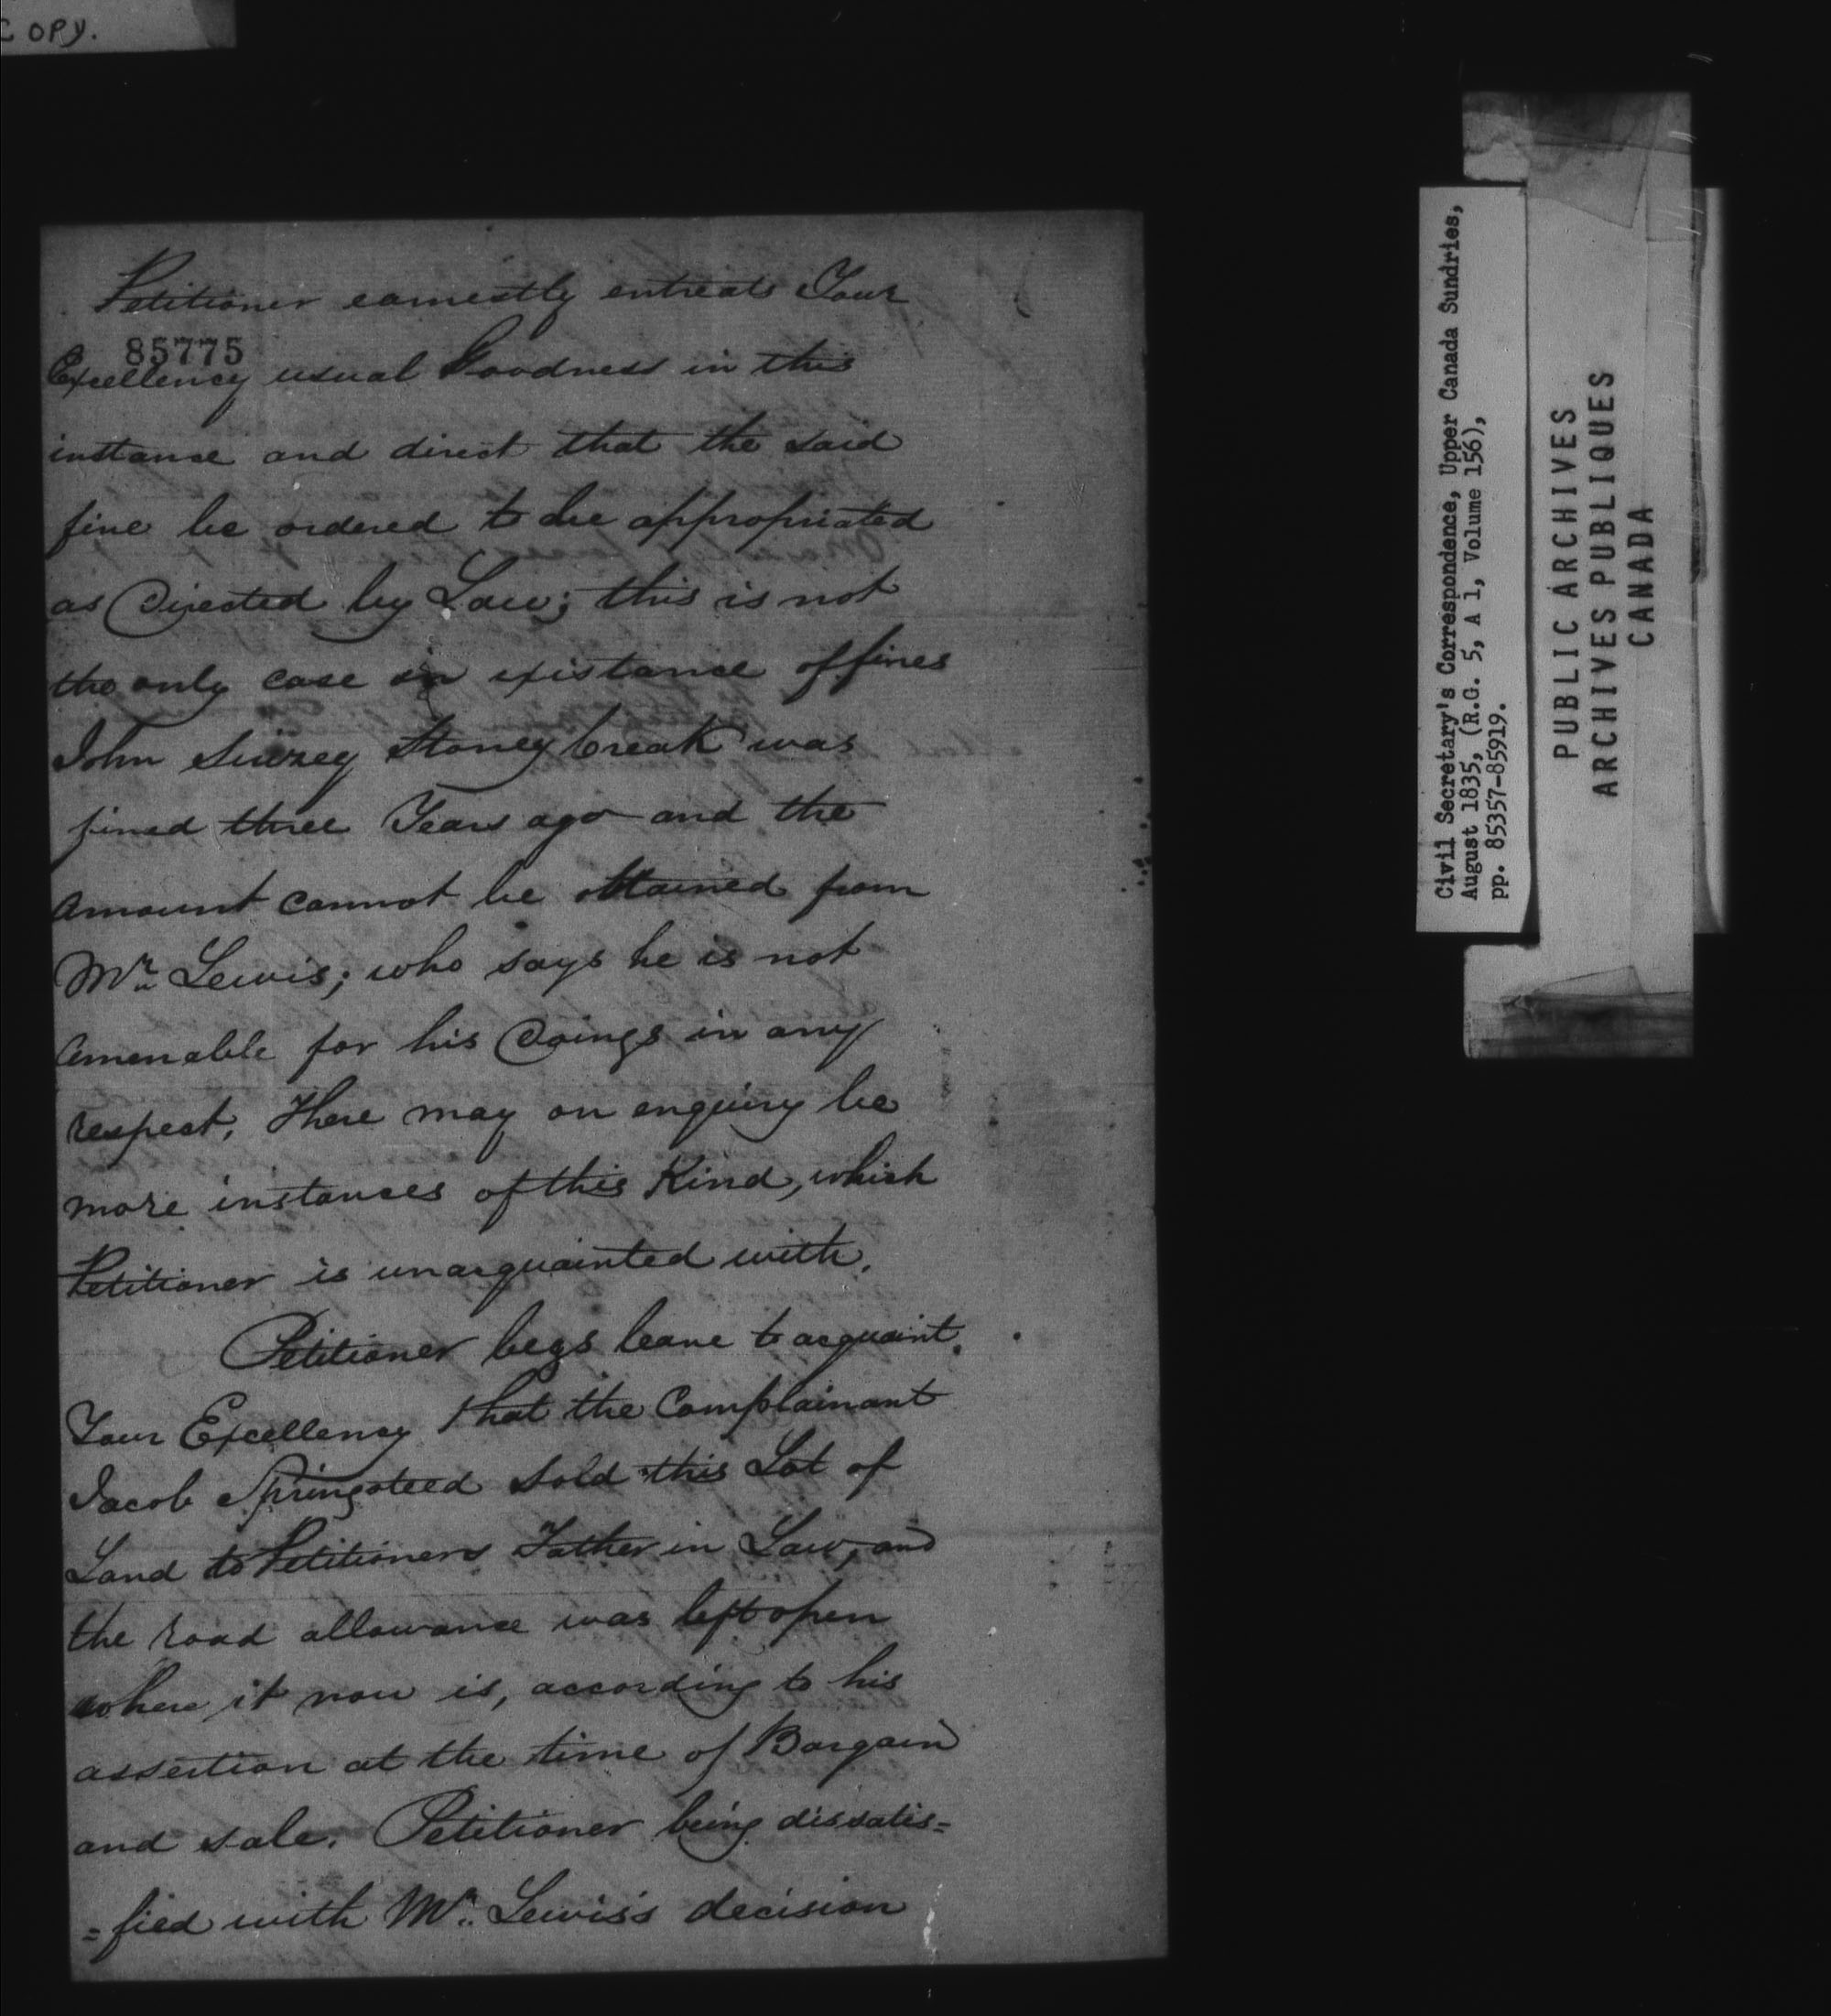 COPY.
Petitioner earnestly entreats Your
85775
Excellency usual Goodness in this
instance and direct that the said
fine be ordered to be appropriated
as Directed by Law; this is not
the only case in existance of fines
John Stoneybreak was
fined three Years ago and the
Amount cannot be obtained from
Mr. Lewis; who says he is not
Amenable for his Doings in any
respect, There may on enquiry be
more instances of this Kind, which
Petitioner is unacquainted with.
Petitioner begs leave to acquaint.
Your Excellency that the Complainant
Jacob Springsteed sold this Lot of
Land to Petitioners Father in Law, and
the road allowance was left open
where it now is, according to his
assertion at the time of Bargain
and sale. Petitioner being dissatis=
=fied with Mr. Lewis's decision
Civil Secretary's Correspondence, Upper Canada Sundries,
August 1835, (R.G. 5, A 1, Volume 156),
pp. 85357-85919.
PUBLIC ARCHIVES
ARCHIVES PUBLIQUES
CANADA